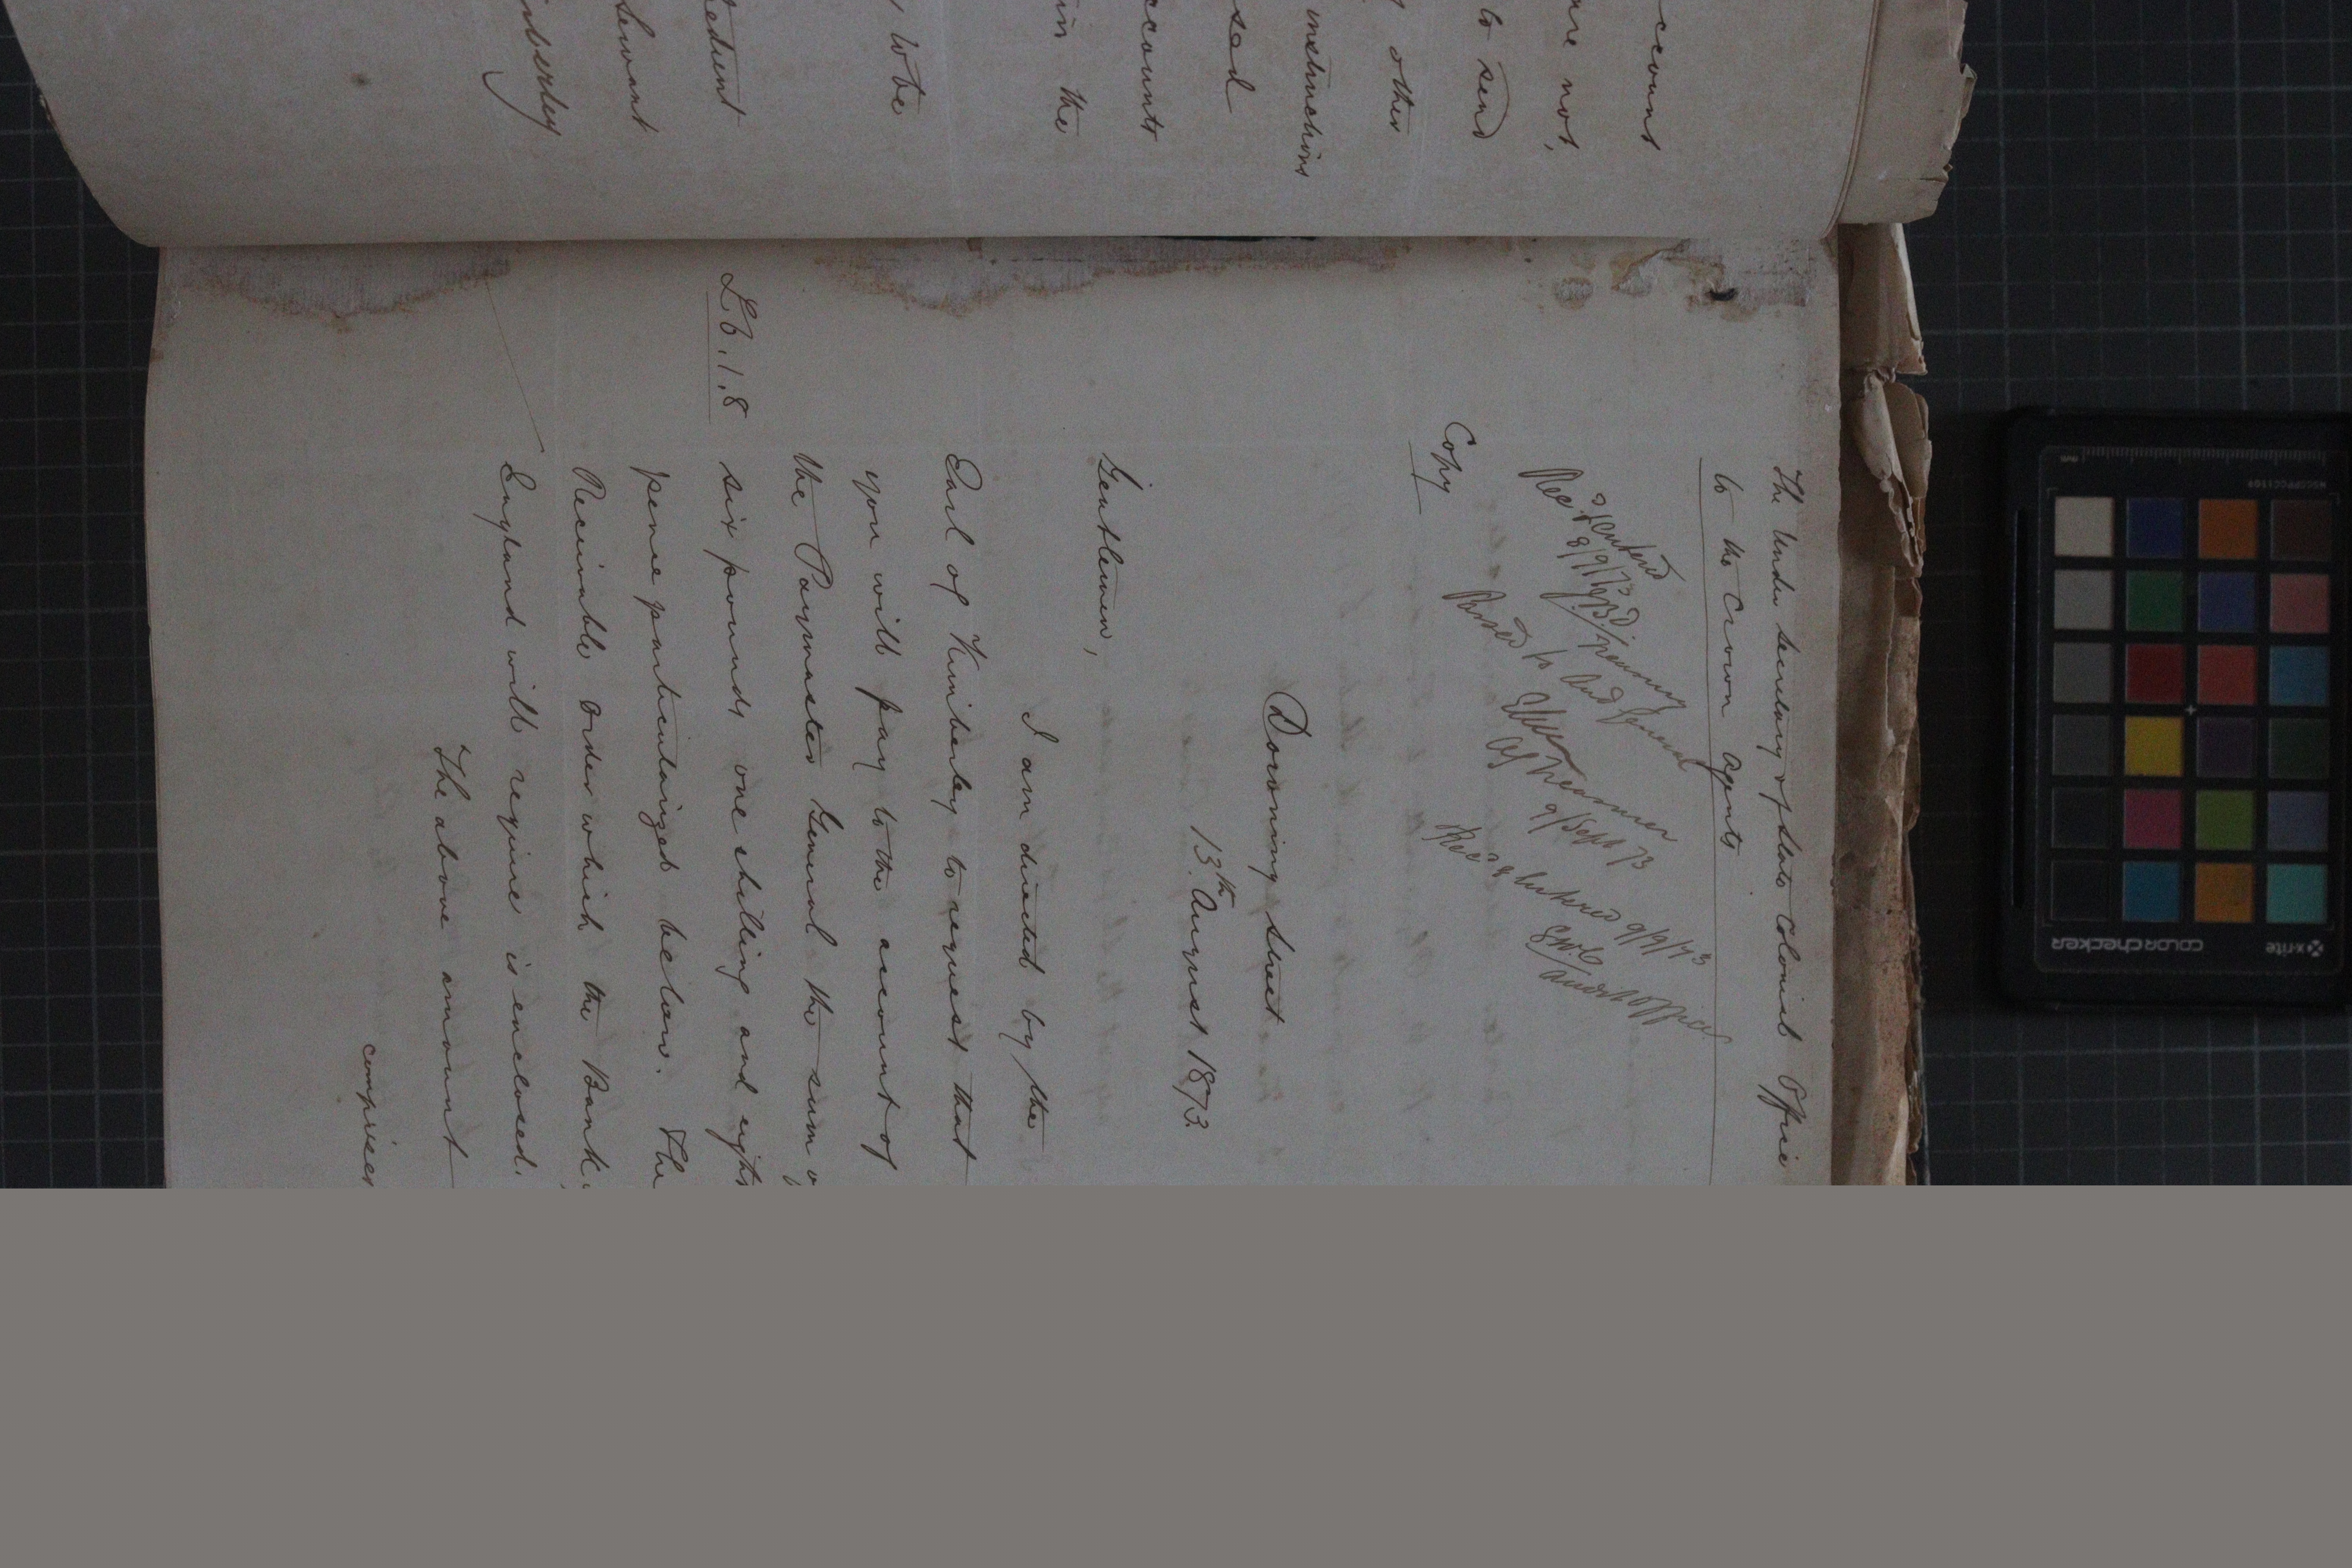 ccount
are not,
to send
other
instructions
sed
ccounts
in the
to be
edient
Servant
mberley
The Under Secretary of State Colonial Office
to the Crown Agents
Rec.d & Entered
8/9/73
Passed to Aud General
9/Sept 73
Rec.d & Entered 9/9/73
Audit Office
Copy
Downing Street
13th August 1873.
Gentlemen,
I am directed by the
Earl of Kimberley to request that
you will pay to the account of
the Paymaster General the sum o
£6.1.8 six pounds one shilling and eight
pence particularized below. The
Receivable Order which the Bank
England will require is enclosed.
The above amount
comprises
x-rite
colorchecker